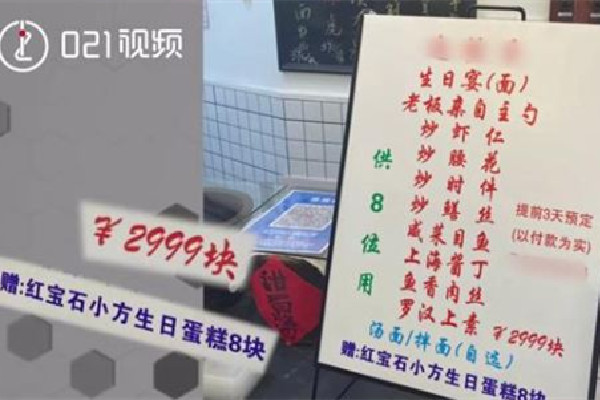 021视频
¥2999块
赠:红宝石小方生日蛋糕8块
生日宴(面)
老板亲自主勺
炒虾仁
炒腰花
炒时件
炒鳝丝
咸菜目鱼
上海酱丁
鱼香肉丝
罗汉上素 ¥2999块
供8位用
提前3天预定
(以付款为实)
汤面/拌面(自选)
赠:红宝石小方生日蛋糕8块